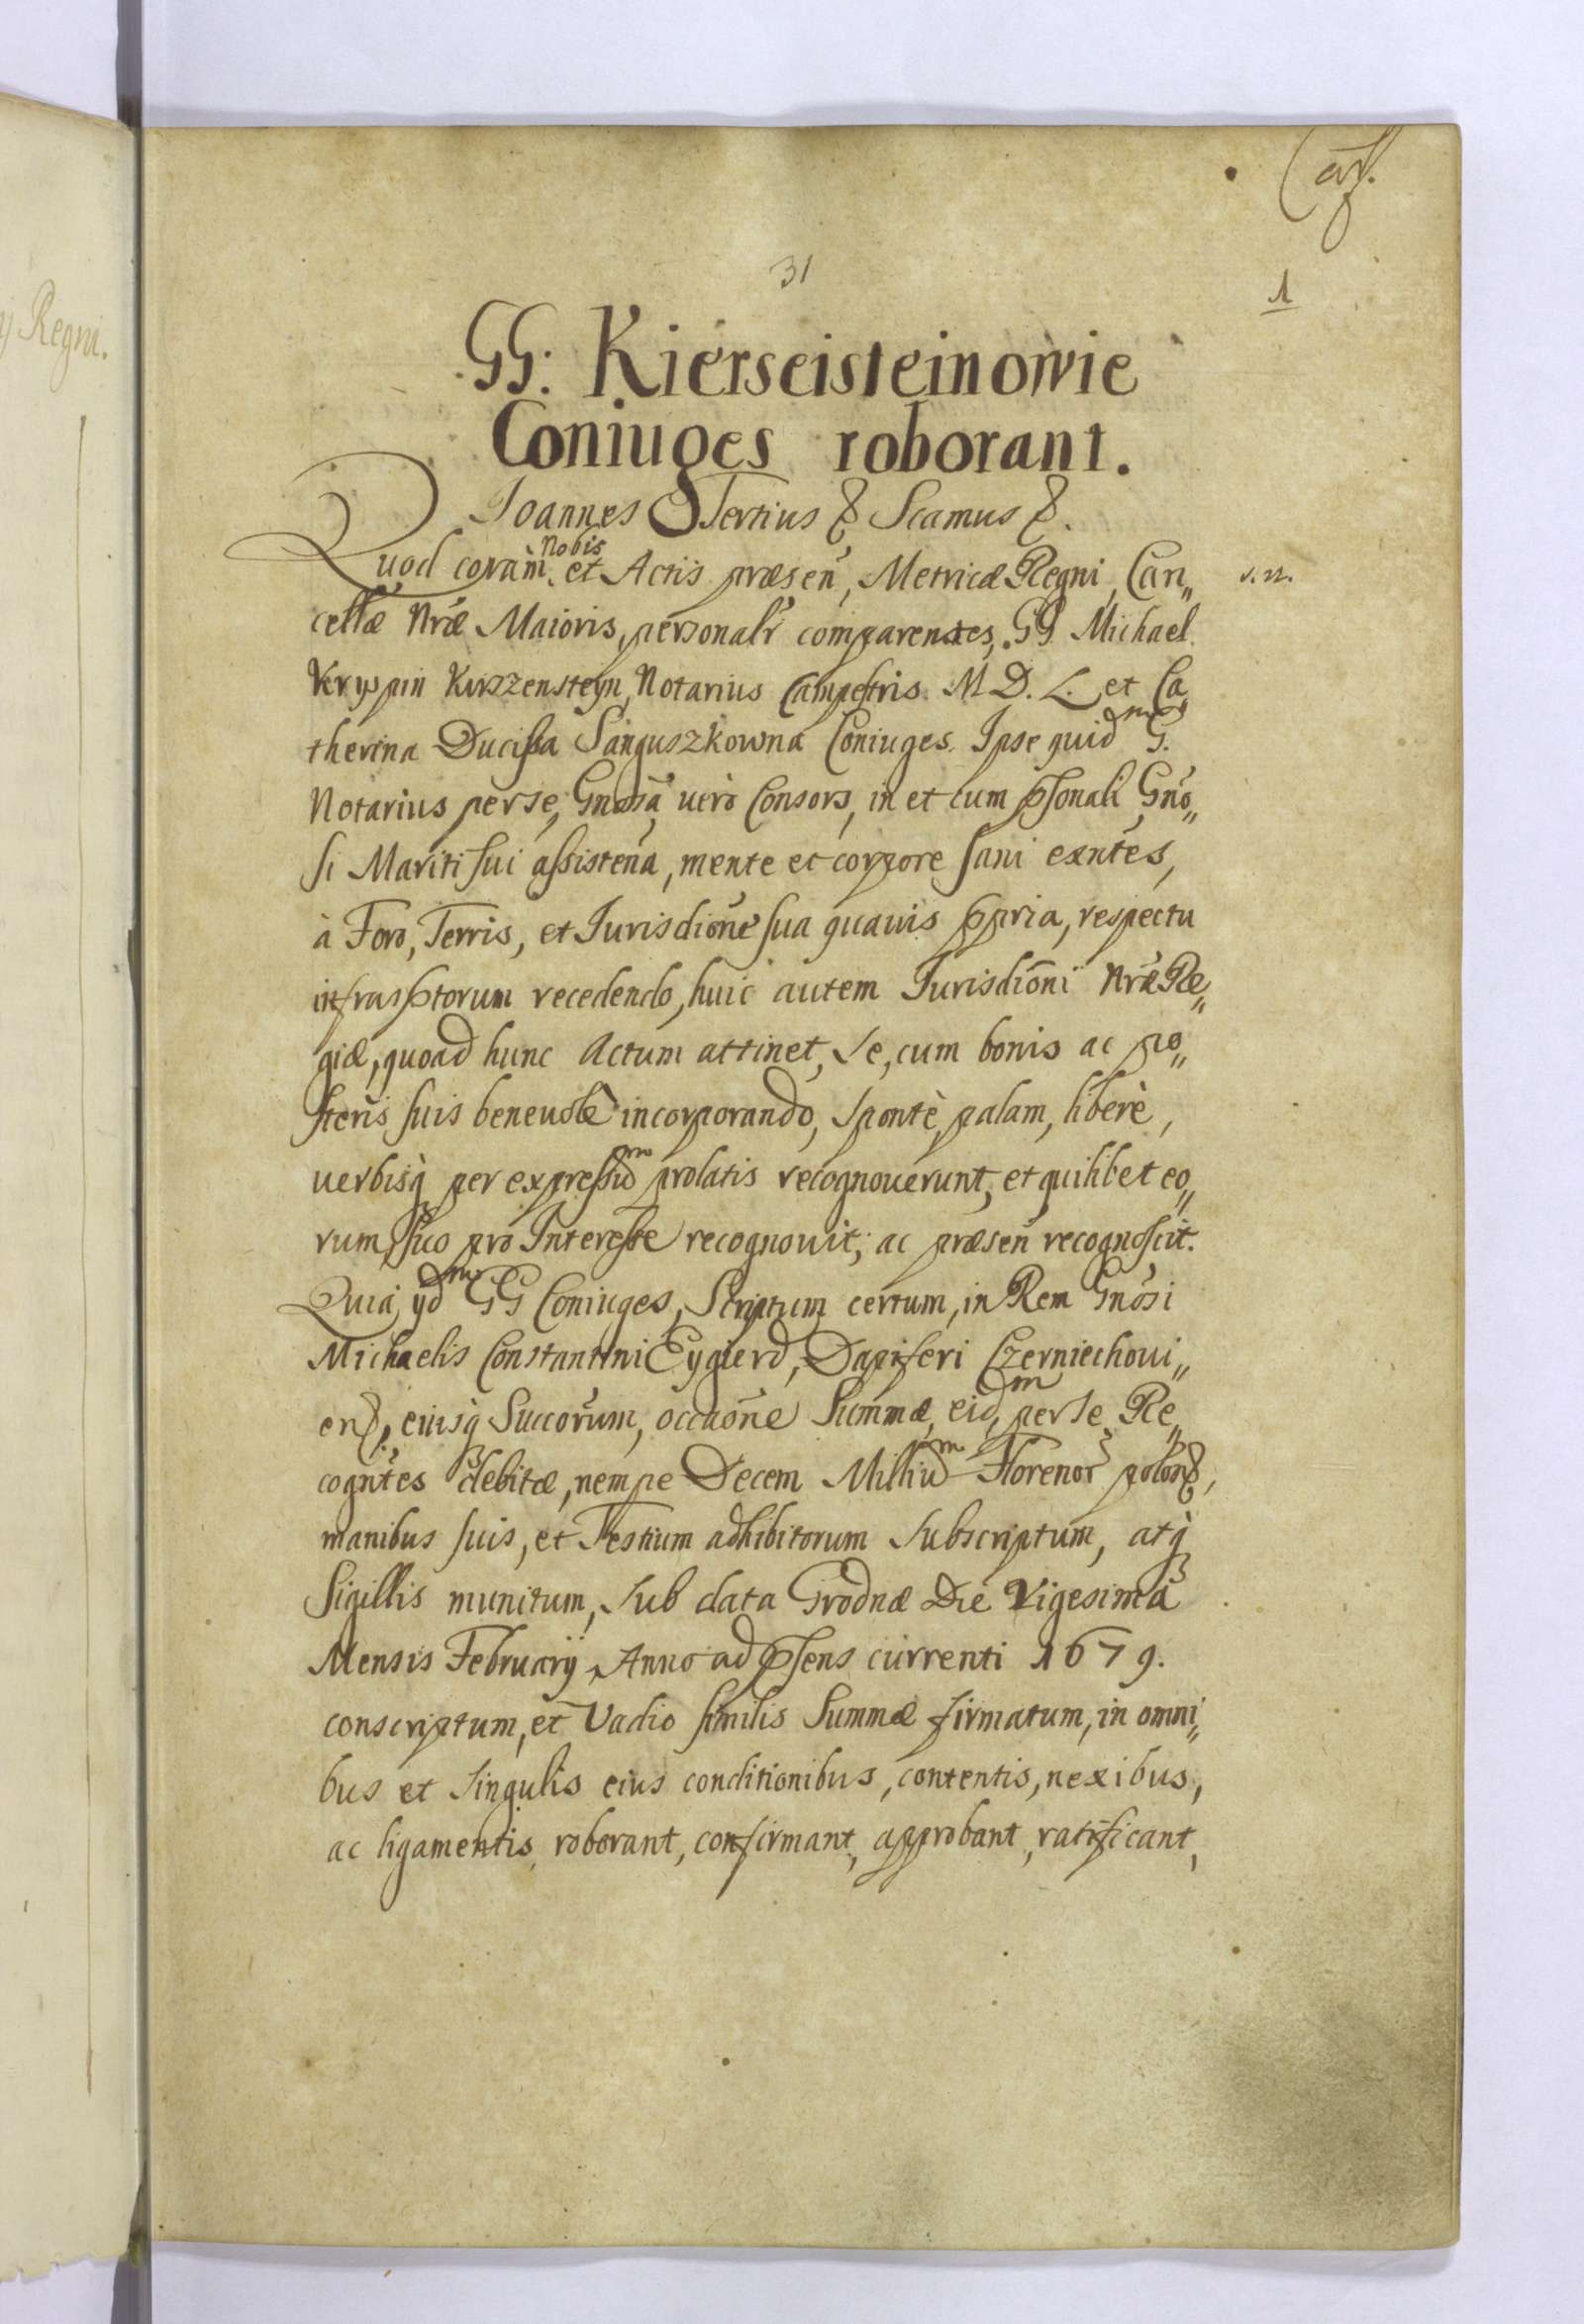 31
1
y Regni.
GG: Kierseisteinowie
Coniuges roborant.
Joannes Tertius & Scamus &.
Nobis
Quod coràm et Actis præsen̄, Metricæ Regni, Can„
v. n.
cellæ Nr̄æ Maioris, personalr̄ comparentes, GG. Michael
Kryspin Kirszensteyn, Notarius Campestris M. D. L. et Ca„
therina Ducissa Sanguszkowna Coniuges. Ipse quid^m G.
Notarius per se, Gnosā verò Consors, in et cum psonali Gnō„
si Mariti sui assisten̄a, mente et corpore sani exn̄tes,
à Foro, Terris, et Jurisdiōne sua quavis ppria, respectu
infrasptorum recedendo, huic autem Jurisdiōni Nr̄æ Re„
giæ, quoad hunc Actum attinet, se, cum bonis ac po„
steris suis benevolè incorporando, spontè, palam, liberè,
verbisq per expressum prolatis recognoverunt, et quilibet eo„
rum, suo pro Interesse recognovit; ac præsen̄ recognoscit.
Quia ijd^m GG Coniuges, Scriptum certum, in Rem Gnōsi
Michaelis Constantini Eygierd, Dapiferi Czerniechovi„
en, eiusq Succorum, occaōne Summæ, eid^m per se Re„
cogn̄tes debitæ, nempe Decem Milliu^m Florenor polon,
manibus suis, et Testium adhibitorum subscriptum, atq
Sigillis munitum, sub data Grodnæ Die Vigesimâ
Mensis Februarij Anno ad psens currenti 1679.
conscriptum, et Vadio similis Summæ firmatum, in omni„
bus et singulis eius conditionibus, contentis, nexibus,
ac ligamentis roborant, confirmant, approbant, ratificant,